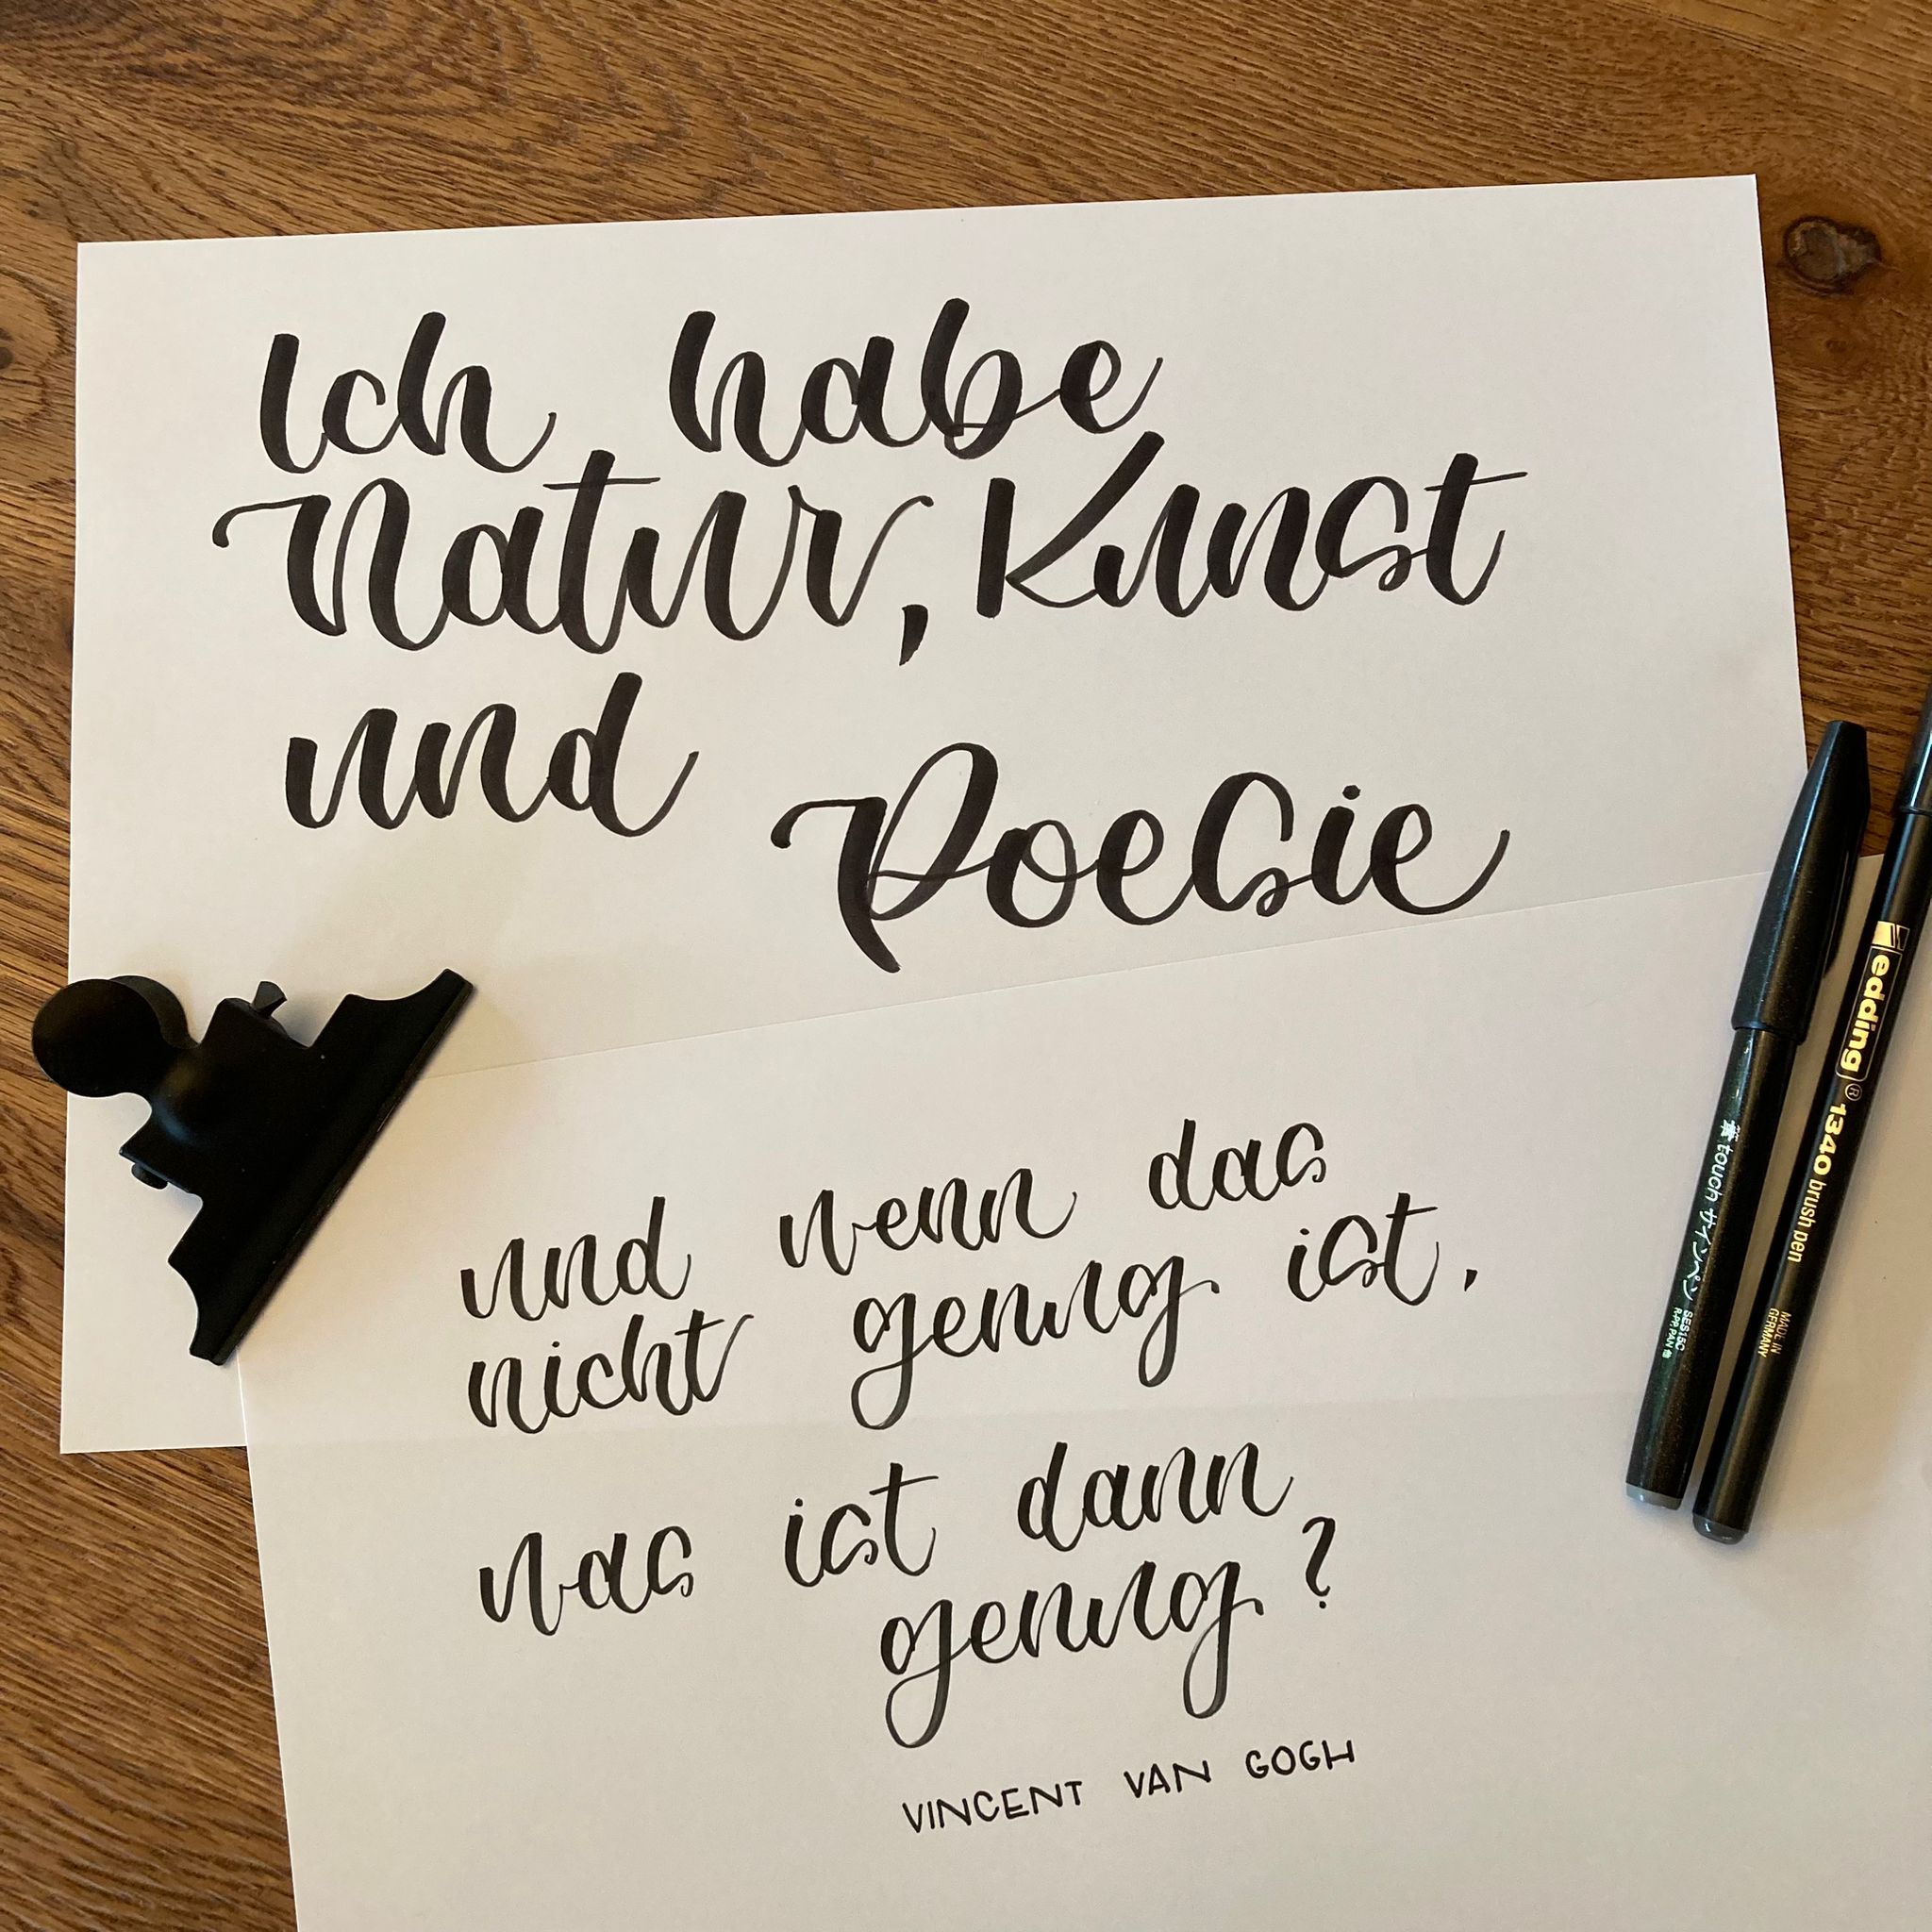 Ich habe
Natur, Kunst
und Poesie
und wenn das
nicht genug ist,
was ist dann
genug?
VINCENT VAN GOGH
touch サインペン
SES15C
edding® 1340 brush pen
MADE IN
GERMANY